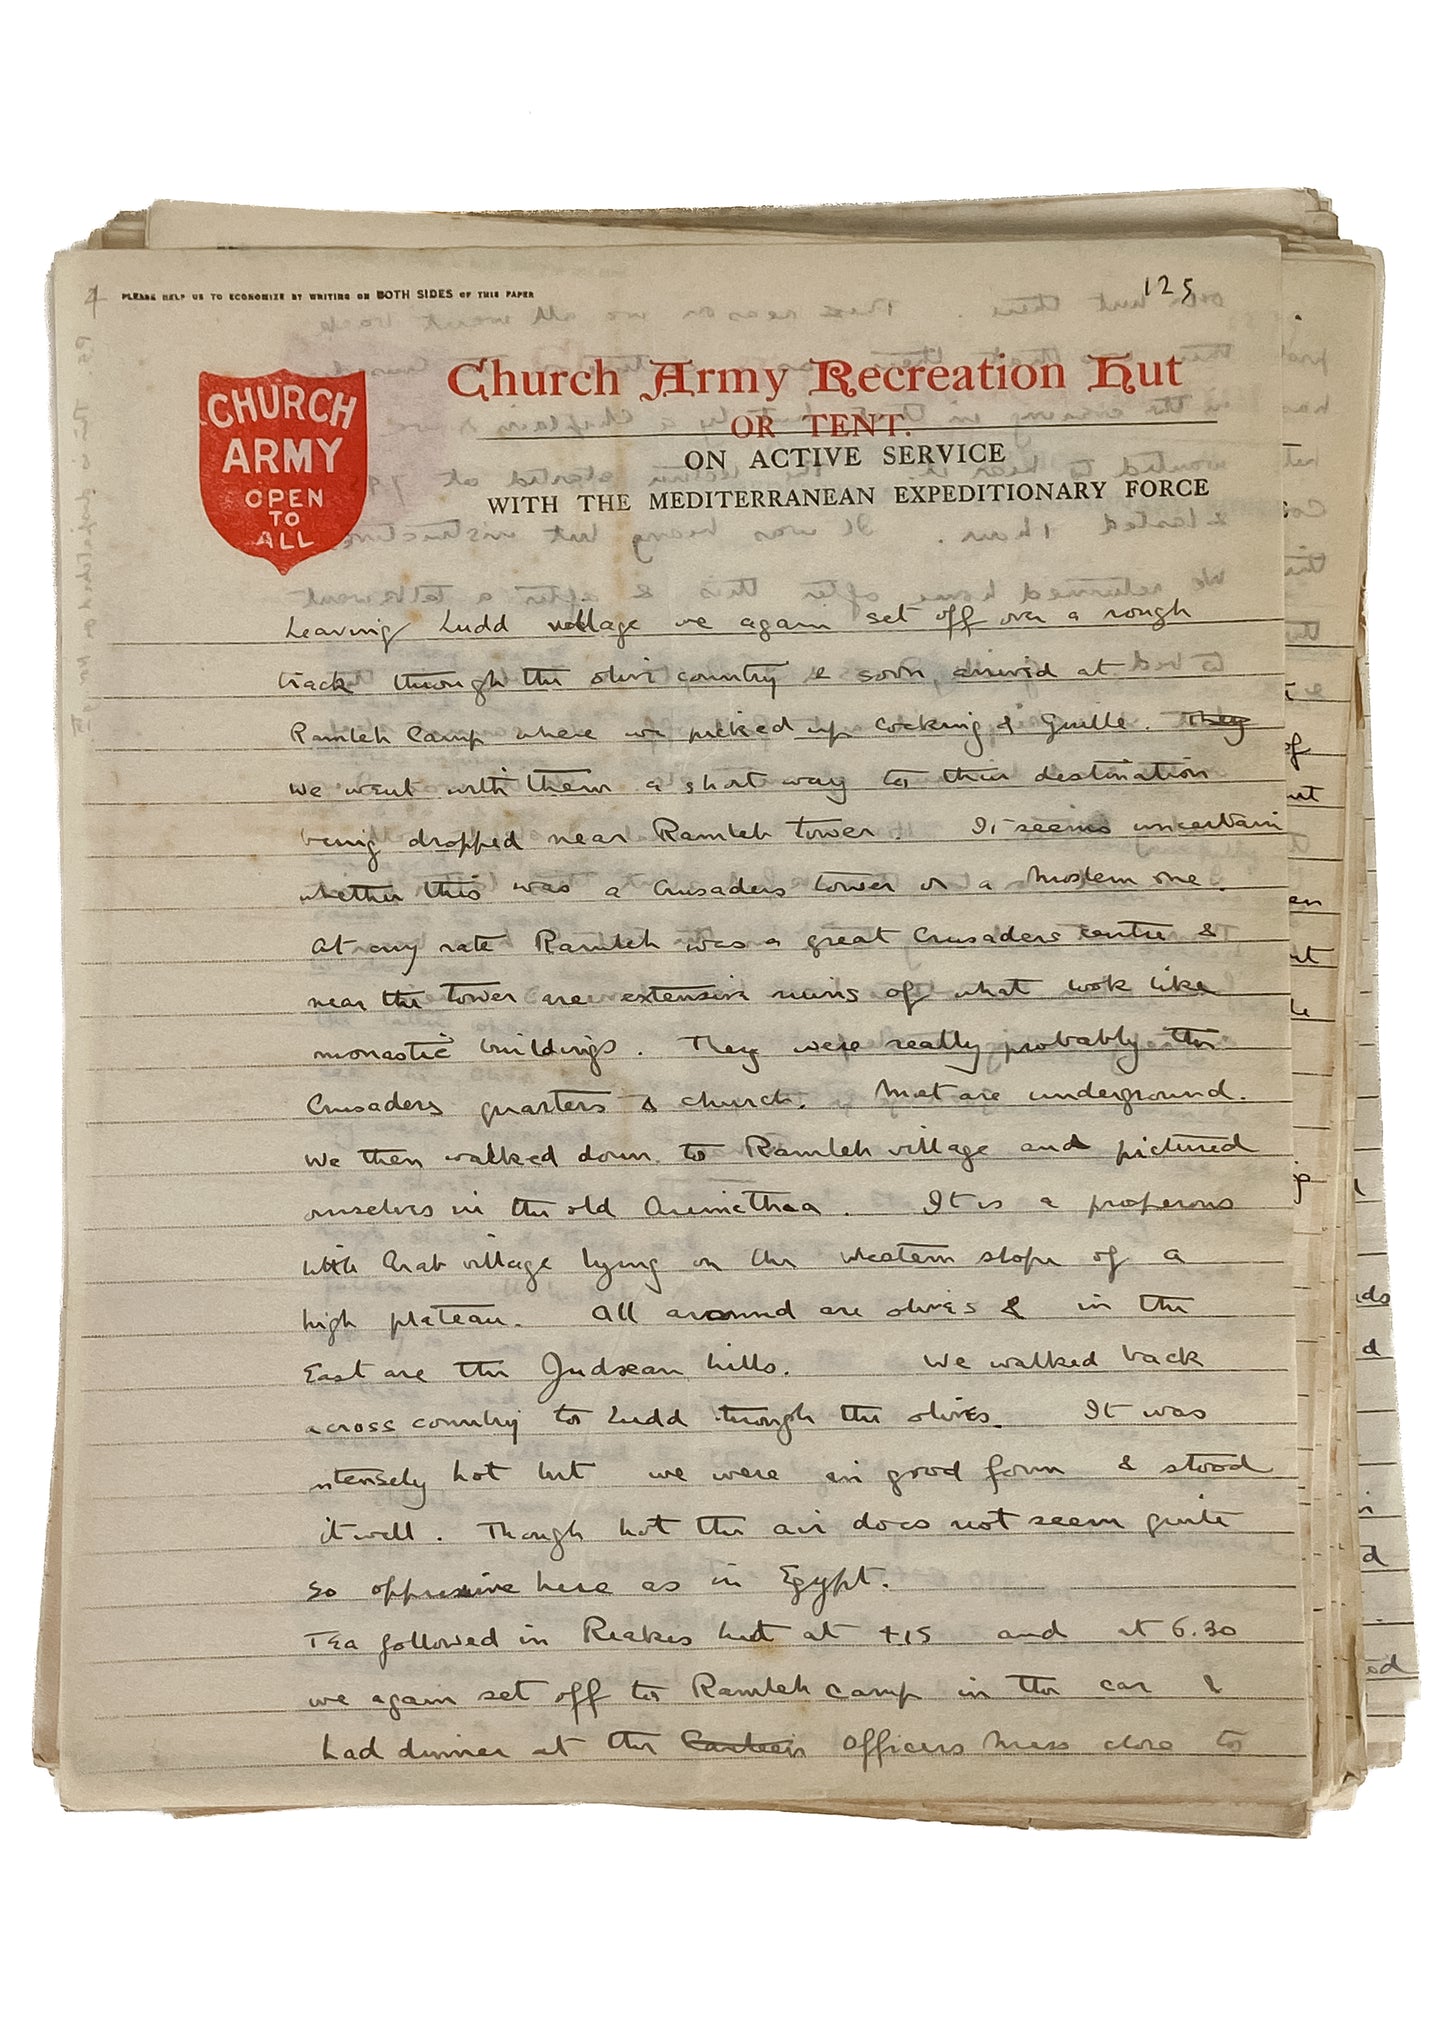 4 PLEASE HELP US TO ECONOMIZE BY WRITING ON BOTH SIDES OF THIS PAPER
125
CHURCH
ARMY
OPEN
TO
ALL
Church Army Recreation Hut
OR TENT.
ON ACTIVE SERVICE
WITH THE MEDITERRANEAN EXPEDITIONARY FORCE
Leaving Ludd village we again set off over a rough
track through the olive country & soon arrived at
Ramleh Camp where we picked up Cocking & Guille. They
we went with them a short way to their destination
being dropped near Ramleh tower. It seems uncertain
whether this was a Crusaders tower or a Moslem one.
At any rate Ramleh was a great Crusaders centre &
near the tower are extensive ruins of what look like
monastic buildings. They were really probably the
Crusaders quarters & church. Most are underground.
We then walked down to Ramleh village and pictured
ourselves in the old Arimethaa. It is a properous
little Arab village lying on the western slope of a
high plateau. All around are olives & in the
East are the Judaean hills. We walked back
across country to Ludd through the olives. It was
intensely hot but we were in good form & stood
it well. Though hot the air does not seem quite
so oppressive here as in Egypt.
Tea followed in Reakes hut at 4.15 and at 6.30
we again set off to Ramleh camp in the car &
had dinner at the Canteen Officers Mess close to